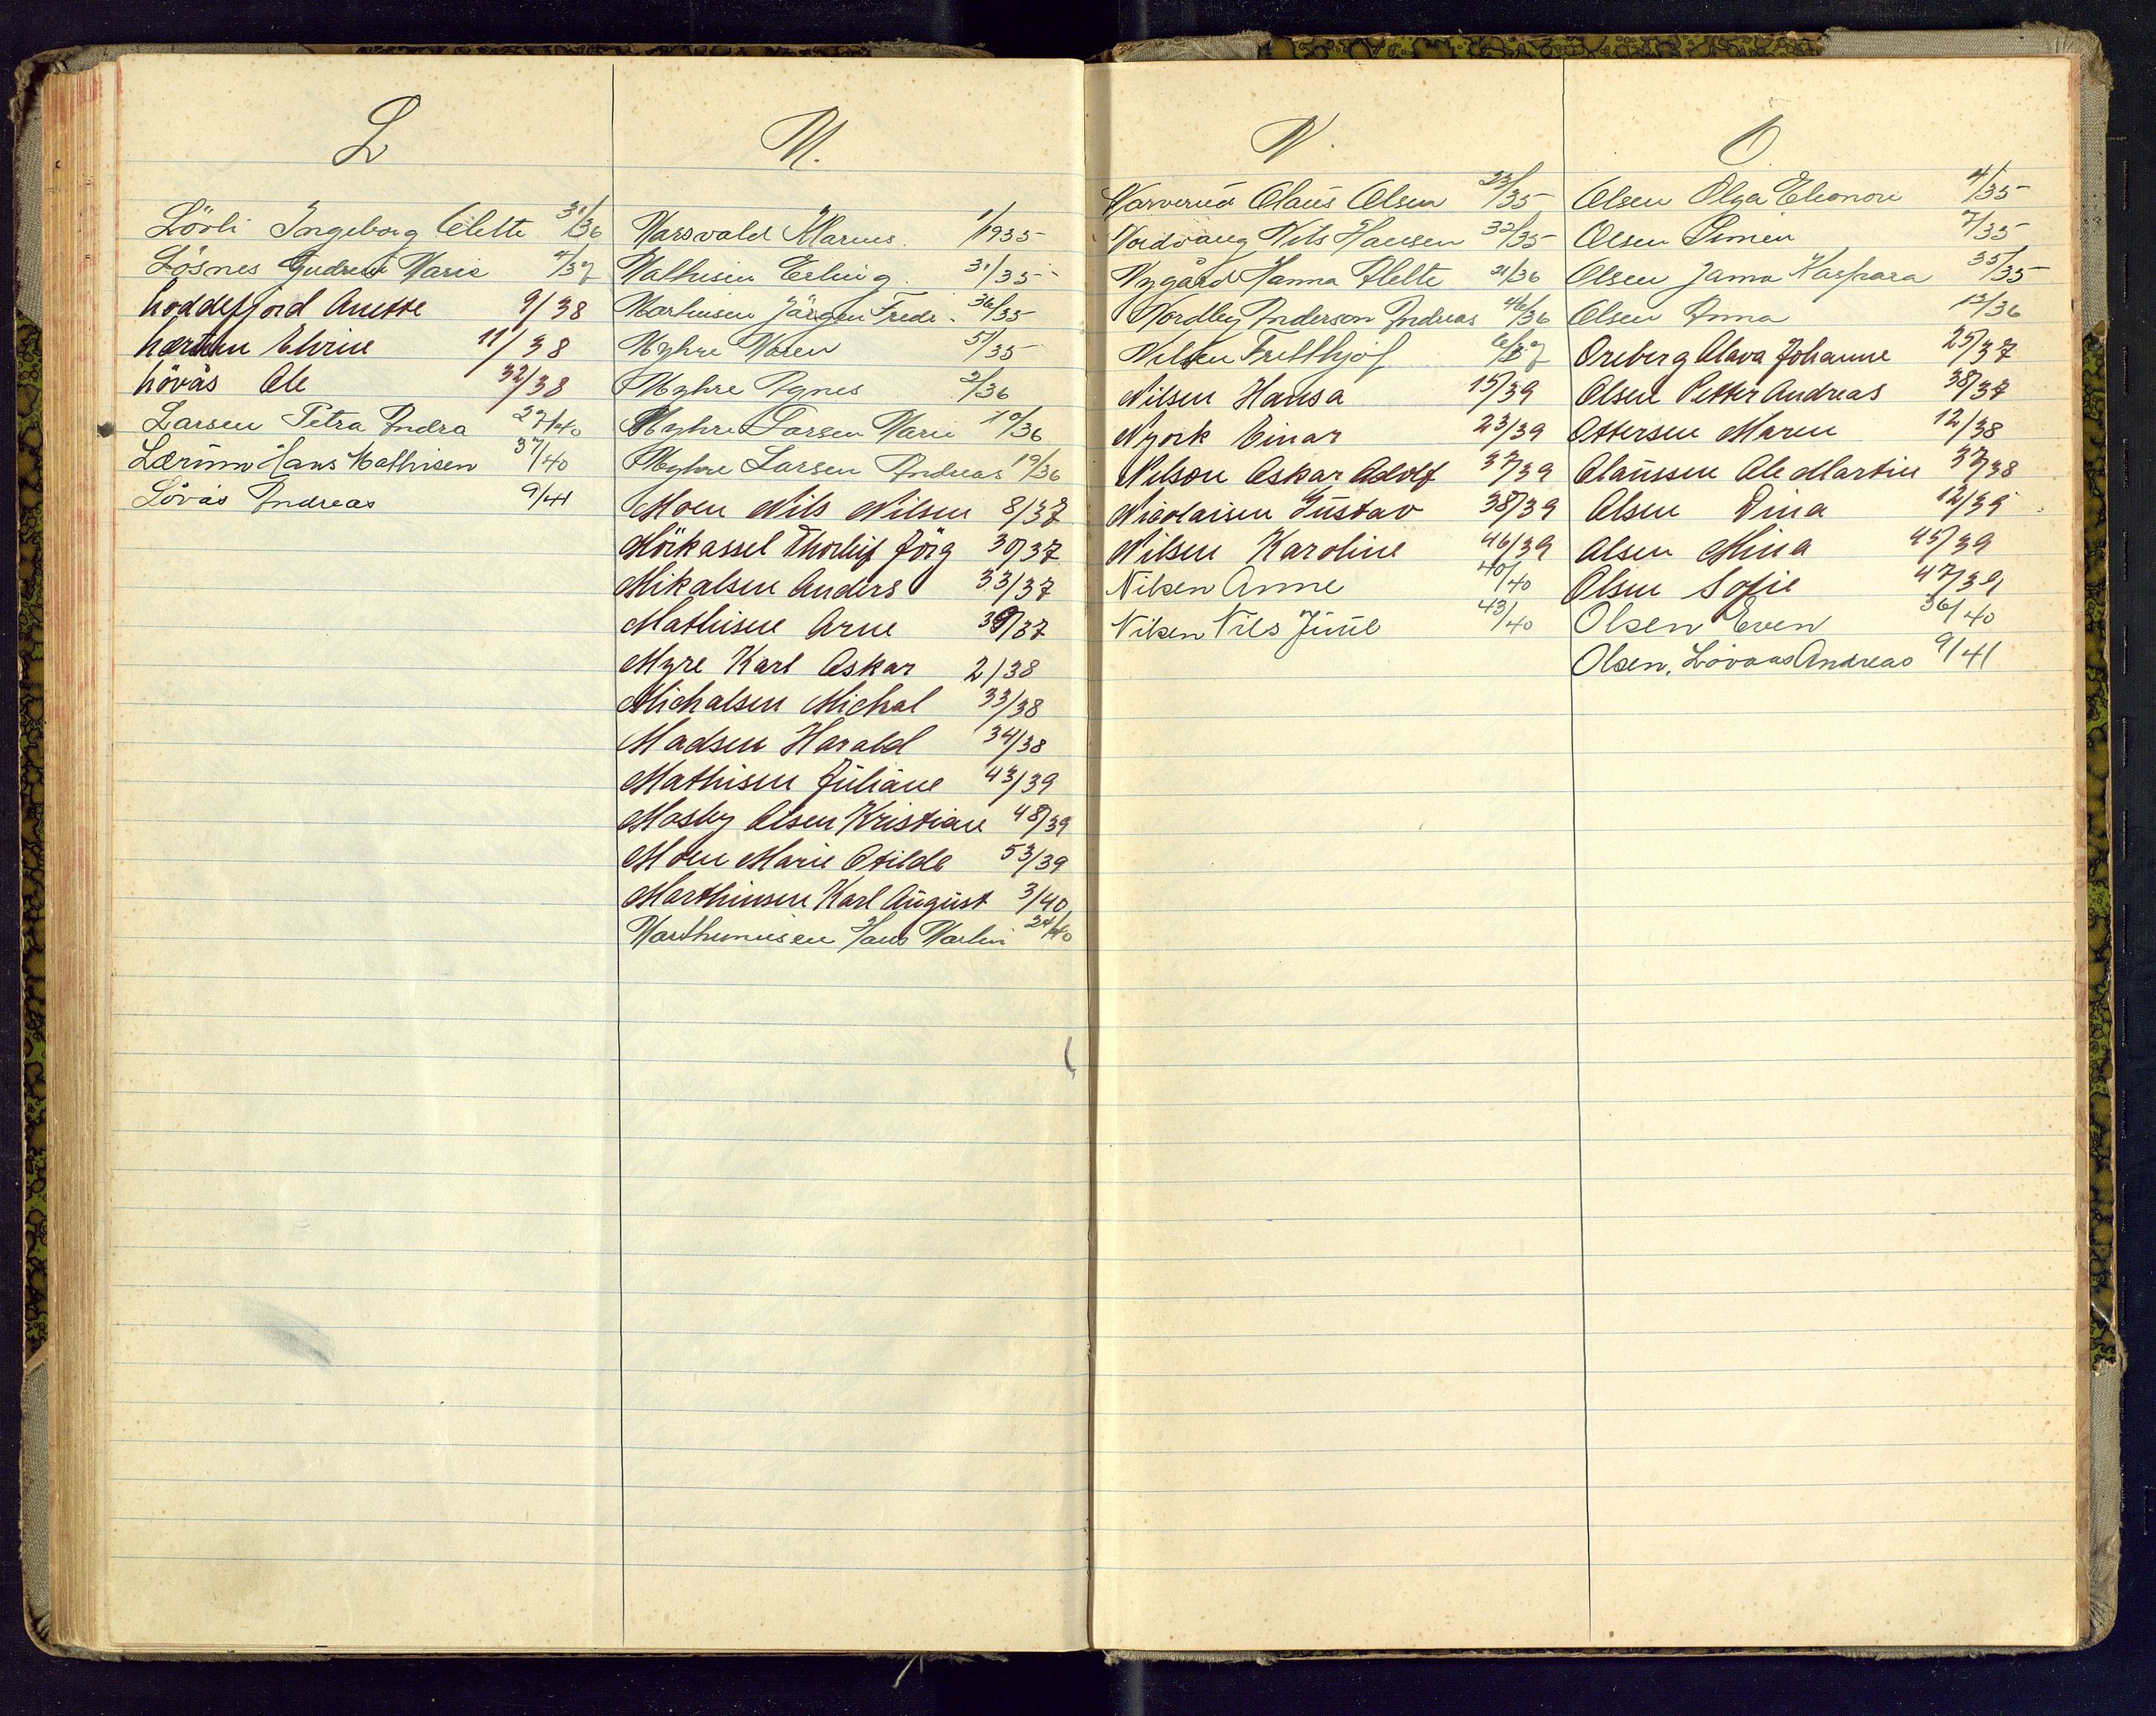 L
Lövli Ingeborg Olette 31/36
Lösnes Gudrun Marie 4/37
Loddefjord Anette 9/38
Lærum Elvine 11/38
Lövås Ole 32/38
Larsen Petra Andra 27/40
Lærum Hans Mathisen 37/40
Lövås Andreas 9/41
M.
Marsvald Marius. 1/1935
Mathisen Erling. 31/35
Marhusen Jörgen Fredr. 36/35
Myhre Maren 51/35
Myhre Agnes 2/36
Myhre Larsen Marie 10/36
Myhre Larsen Andreas 19/36
Moen Nils Nilsen 8/37
Mörkassel Thorleif Jörg 30/37
Mikalsen Anders 33/37
Mathisen Arne 39/37
Myre Karl Oskar 2/38
Michalsen Michal 33/38
Madsen Harald 34/38
Mathisen Juliane 43/39
Mosby Olsen Kristian 48/39
Moen Marie Otilde 53/39
Marthinsen Karl August 3/40
Marthinnisen Hans Martin 24/40
N.
Narverud Olaus Olsen 23/35
Nordvang Nils Hansen 32/35
Nygård Hanna Alette 21/36
Nordley Anderson Andreas 46/36
Nilsen Fritthjof 6/37
Nilsen Hansa 15/39
Nyork Einar 23/39
Nilson Oskar Adolf 37/39
Nicolaisen Gustav 38/39
Nilsen Karoline 46/39
Nilsen Anne 40/40
Nilsen Nils Juul 43/40
O
Olsen Olga Eleonore 4/35
Olsen Simen 7/35
Olsen Jama Kaspara 35/35
Olsen Anna 13/36
Oreberg Olava Johanne 25/37
Olsen Petter Andreas 38/37
Ottersen Maren 12/38
Olaussen Ole Martin 37/38
Olsen Dina 12/39
Olsen Mina 45/39
Olsen Sofie 47/39
Olsen Even 36/40
Olsen, Lövaas Andreas 9/41